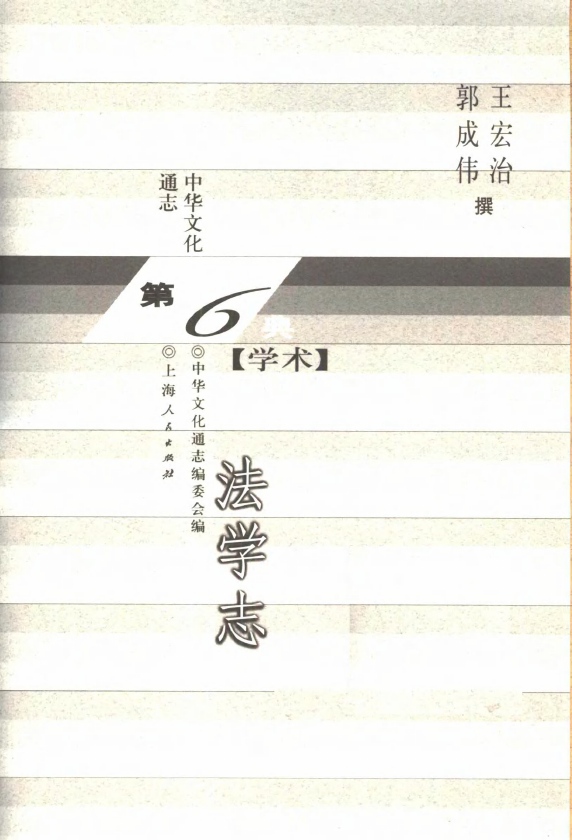 王宏治
郭成伟
撰
中华文化
通志
第
6
典
【学术】
◎中华文化通志编委会编
◎上海人民出版社
法学志